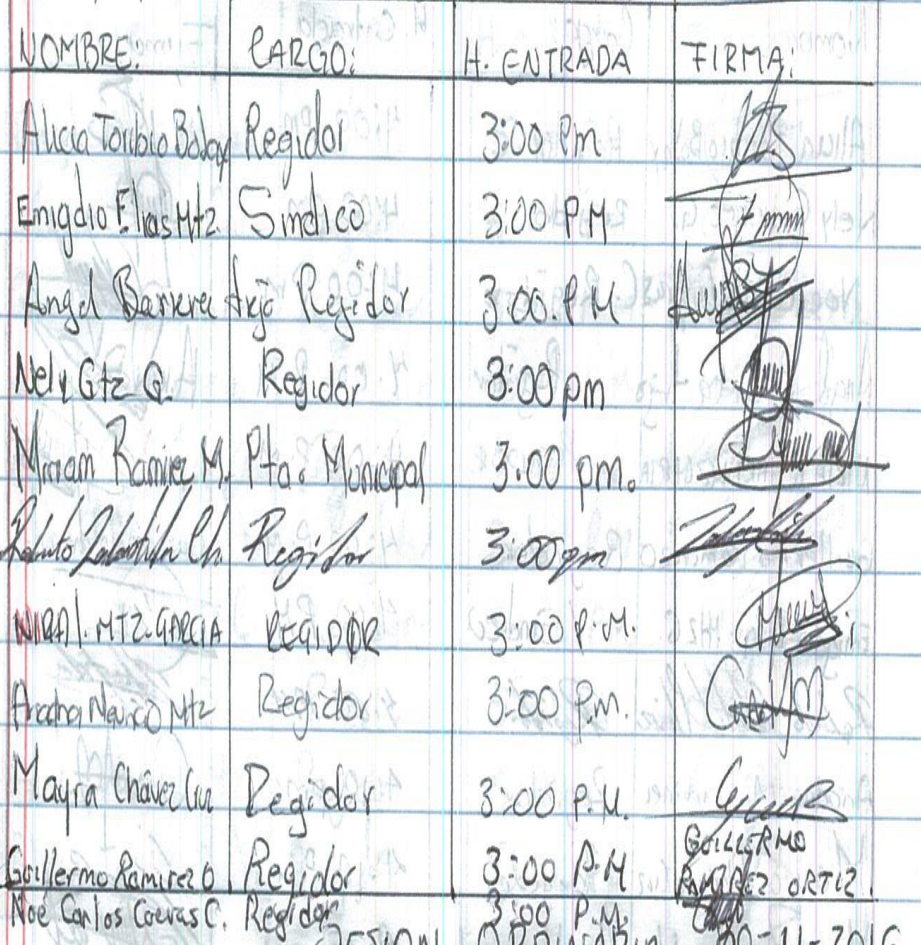 NOMBRE: CARGO: H. ENTRADA FIRMA:
Alicia Toribio Regidor 3:00 Pm
Emigdio Elias Mtz. Sindico 3:00 P.M
Angel Barrera Regidor 3:00.P.M
Nely Gtz G. Regidor 3:00 pm
Miriam Ramirez M. Pta. Municipal 3:00 pm.
Ch. Regidor 3:00pm
MTZ. GARCIA REGIDOR 3:00 P.M.
Mtz Regidor 3:00 P.M.
Mayra Chávez Regidor 3:00 P.M.
Guillermo Ramirez O. Regidor 3:00 P.M GUILLERMO RAMIREZ ORTIZ.
Noé Carlos Cuevas C. Regidor 3:00 P.M.